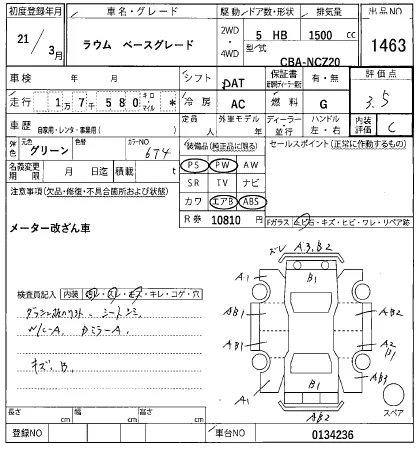 初度登録年月 車名・グレード 駆動 ドア数・形状 排気量 出品NO
21 / 3月 ラウム ベースグレード 2WD ・ 4WD 5 HB 1500 cc 1463
型/式 CBA-NCZ20
車検 年 月 シフト DAT 保証書 有・無 評価点
走行 1万7千580 キロ・マイル * 冷房 AC 燃料 G 3.5
車歴 自家用・レンタ・事業用( ) 定員 人 外車モデル 年 ディーラー 並行 ハンドル 左・右 内装評価 C
外色 元色 グリーン 色替 カラーNO 674
装備品(純正品に限る) セールスポイント(正常に作動するもの)
名義変更期限 月 日迄 積載 t
PS PW AW
SR TV ナビ
カワ エアB ABS
R券 10810 円
注意事項(欠品・修復・不具合箇所および状態)
メーター改ざん車
Fガラス 飛石・キズ・ヒビ・ワレ・リペア跡
検査員記入 内装 汚レ・スレ・キズ・キレ・コゲ・穴
シートシミ
キズ、B、
ズレ A3,B2
A1 B1
AB1 AB2
AB1 A2 B1
A1 B1 AB3
AB2
スペア
長さ cm 幅 cm 高さ cm
登録NO 車台NO 0134236